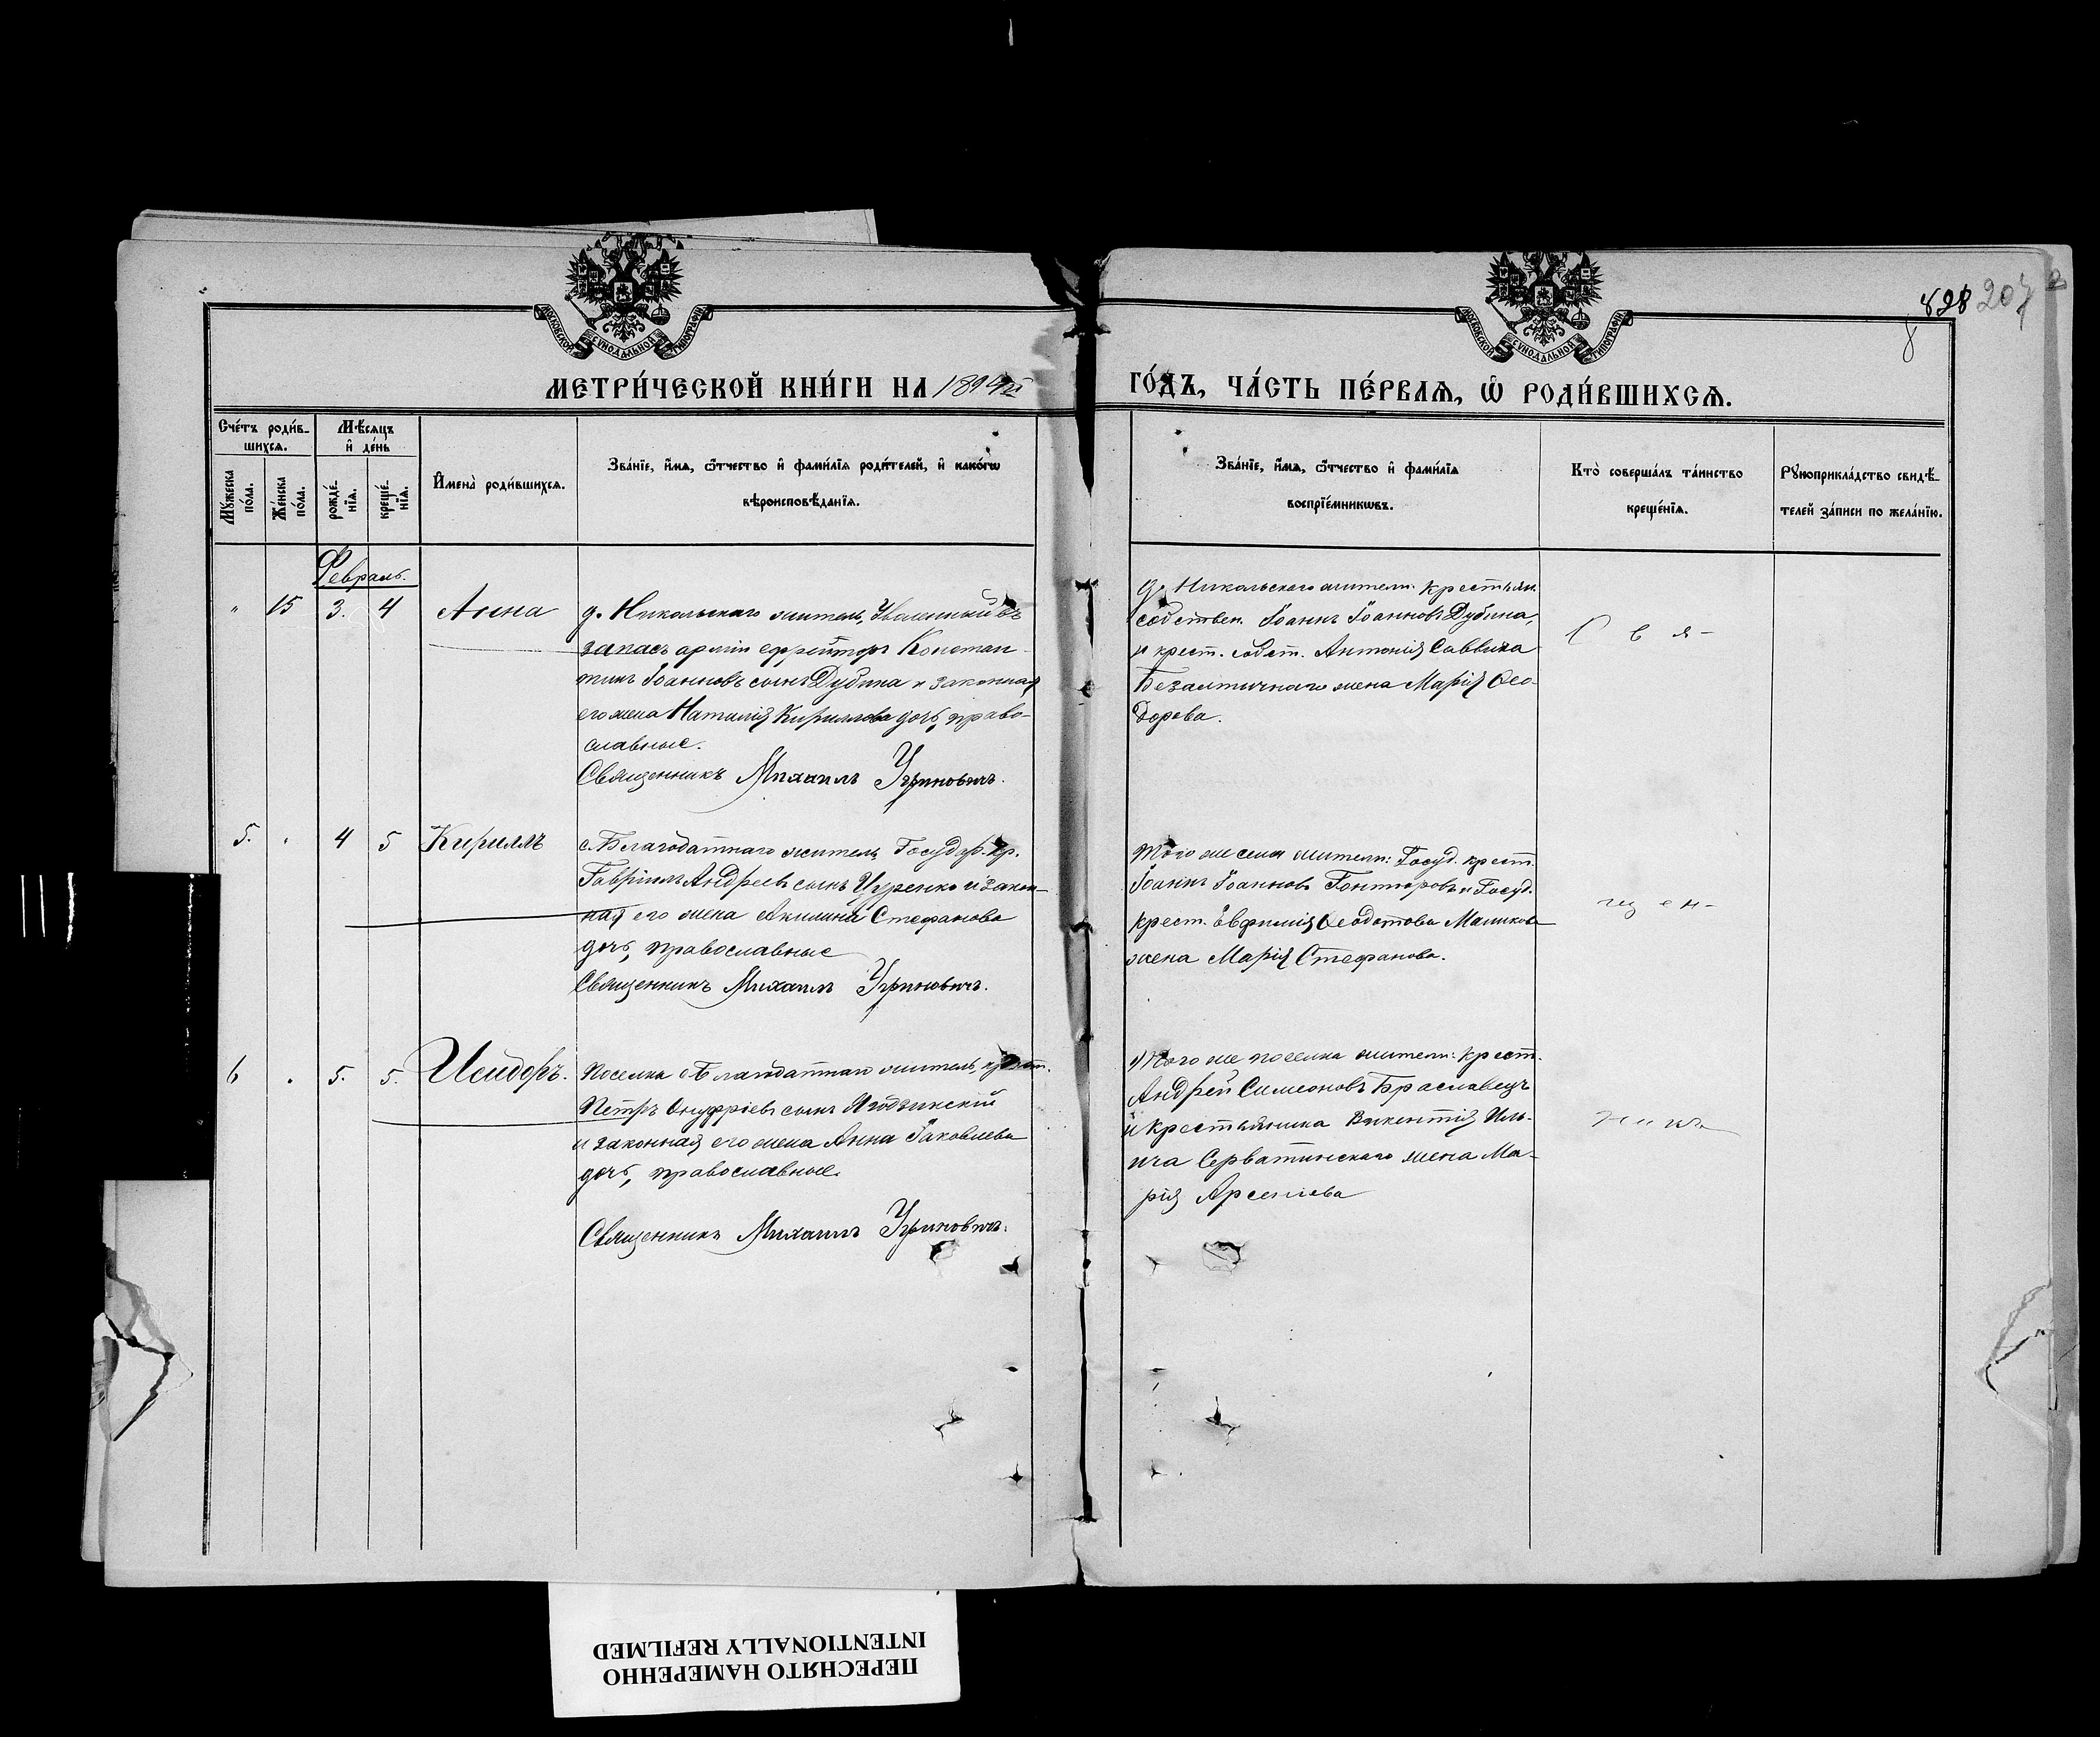 828 207
МОСКОВСКОЙ СѴНОДАЛЬНОЙ ТИПОГРАФІИ
МОСКОВСКОЙ СѴНОДАЛЬНОЙ ТИПОГРАФІИ
МЕТРИ́ЧЕСКОЙ КНИ́ГИ НА 1894й
ГО́ДЪ, ЧА́СТЬ ПЕ́РВАѦ, Ѽ РОДИ́ВШИХСѦ.
Сче́тъ роди́в-
шихсѧ.
Мꙋ́жеска
по́ла.
Же́нска
по́ла.
Мѣ́сѧцъ
и҆ де́нь
рожде́-
нїѧ.
креще́-
нїѧ.
И҆мена̀ роди́вшихсѧ.
Зва́нїе, и҆́мѧ, ѻ҆́тчество и҆ фами́лїѧ роди́телей, и҆ како́гѡ
вѣроисповѣ́данїѧ.
Зва́нїе, и҆́мѧ, ѻ҆́тчество и҆ фами́лїѧ
воспрїе́мникѡвъ.
Кто̀ соверша́лъ та́инство
креще́нїѧ.
Рꙋкоприкла́дство свидѣ́-
телей за́писи по жела́нїю.
Февраль.
" 15 3. 4 Анна
д. Никольскаго житель, Уволенный въ
запасъ арміи ефрейторъ Констан-
тинъ Іоанновъ сынъ Дубина и законная
его жена Наталія Кириллова дочь, право-
славные.
Священникъ Михаилъ Угриновичъ.
д. Никольскаго жители: крестьян.
собствен. Іоаннъ Іоанновъ Дубина,
и крест. собст. Антонія Саввича
жена Марія Ѳео-
дорова.
С в я-
5. . 4 5 Кириллъ
с. Благодатнаго житель, Государ. кр.
Гавріилъ Андреевъ сынъ Цуренко и закон-
ная его жена Акилина Стефанова
дочь, православные
Священникъ Михаилъ Угриновичъ.
Того же села жители: Госуд. крест.
Іоаннъ Іоанновъ и Госуд.
крест. Евфимія Ѳеодотова Маликова
жена Марія Стефанова.
щ е н-
6 . 5. 5. Исидоръ.
Поселка Благодатнаго житель, крест.
Петръ Онуфріевъ сынъ Ягодзинскій
и законная его жена Анна Іаковлева
дочь, православные.
Священникъ Михаилъ Угриновичъ.
Того же поселка жители: крест.
Андрей Симеоновъ Браславецъ
и крестьянина Викентія Иль-
ича Серватинскаго жена Ма-
рія Арсеніева
никъ
ПЕРЕСНЯТО НАМЕРЕННО
INTENTIONALLY REFILMED